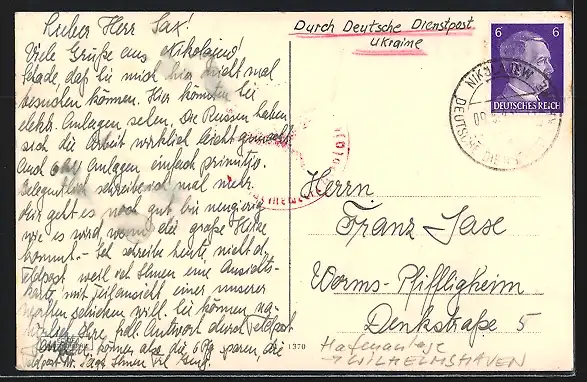 Lieber Herr Sax!
Viele Grüße aus Nikolajew!
Schade, daß Sie mich hier nicht mal
besuchen können. Hier könnten Sie
elektr. Anlagen sehen, die Russen haben
sich die Arbeit wirklich leicht gemacht
und Anlagen einfach primitiv.
Gelegentlich schreibe ich mal mehr.
Mir geht es noch gut, bin neugierig
wie es wird, wenn die große Hitze
kommt. - Ich schreibe heute nicht d.
Feldpost weil ich Ihnen eine Ansichts-
karte mit Teilansicht einer unserer
schicken will. Sie können na-
türlich Ihre Antwort durch Feldpost
können also die 6 Pfg sparen, die
Ihnen
Durch Deutsche Dienstpost
Ukraine
6 6
DEUTSCHES REICH
NIKOLAJEW
DEUTSCHE DIENSTPOST
Herrn
Franz Sase
Worms-Pfiffligheim
Denkstraße 5
1370
Hafenanlage
WILHELMSHAVEN